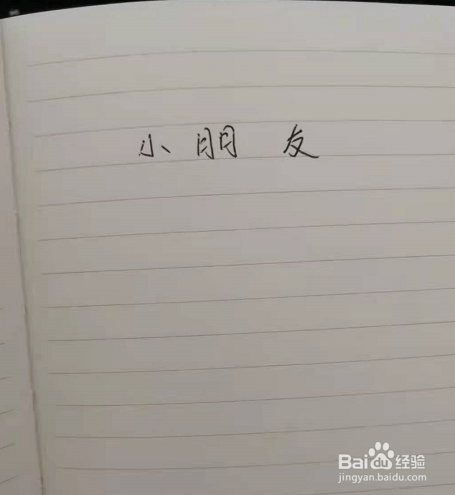 小朋 友
Baidu经验
jingyan.baidu.com